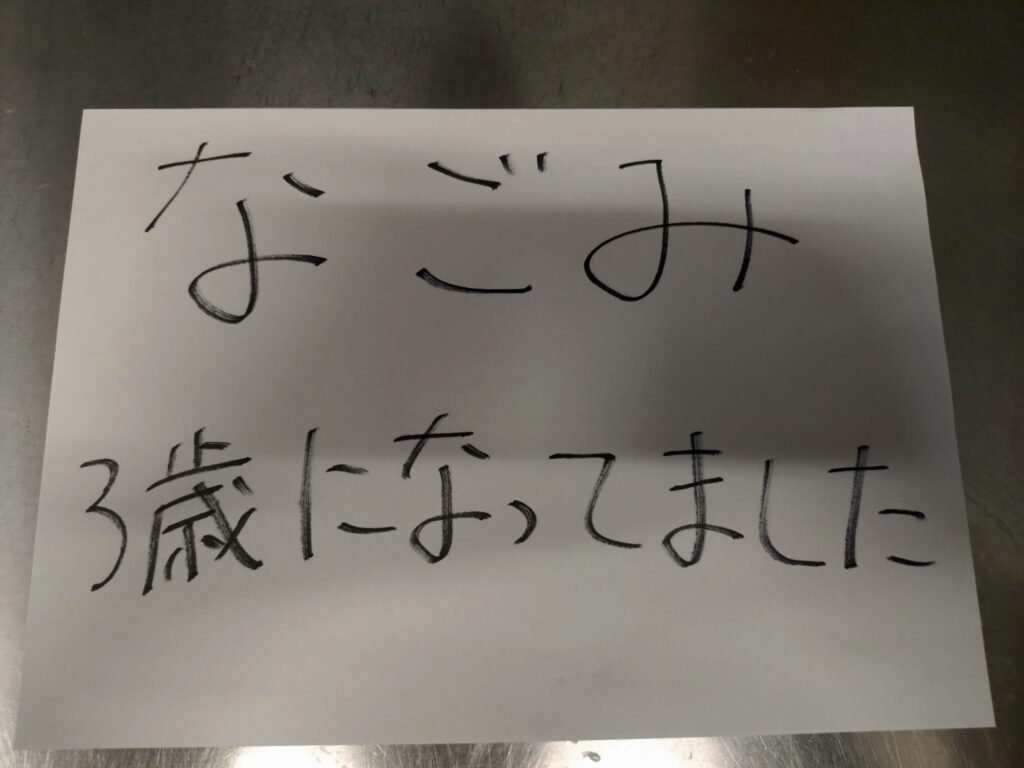 なごみ
3歳になってました